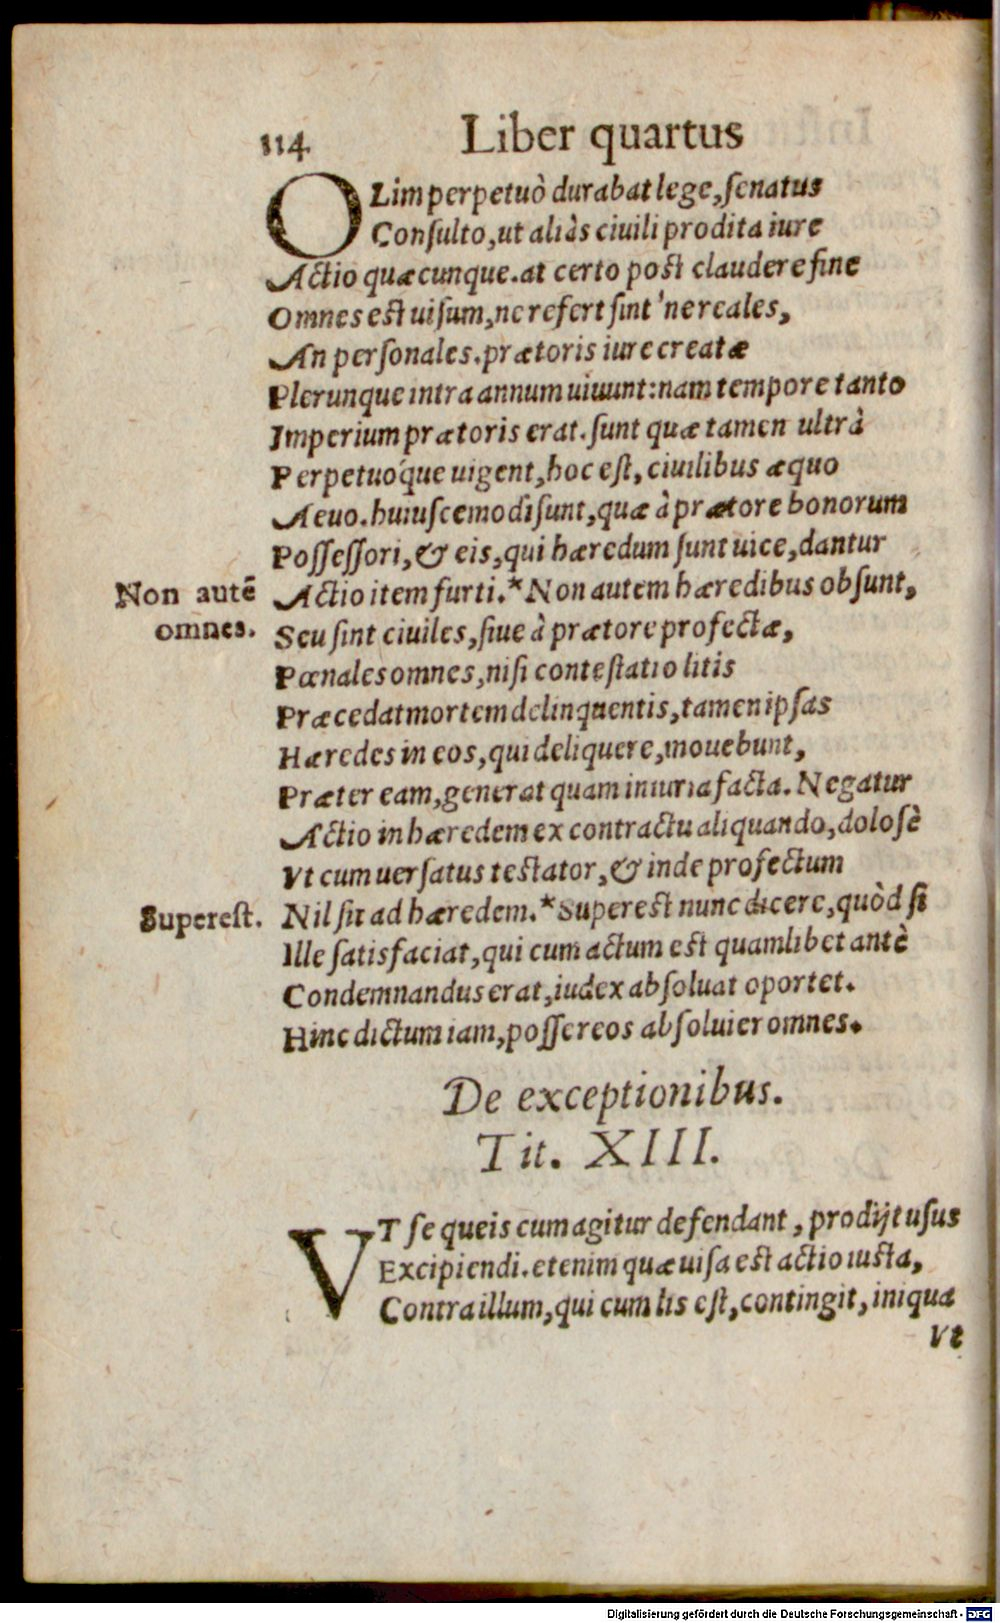 114 Liber quartus
OLim perpetuò durabat lege, ſenatus
Conſulto, ut aliàs ciuili prodita iure
Actio quæcunque. at certo poſt claudere fine
Omnes eſt uiſum, ne refert ſint 'ne reales,
An perſonales. prætoris iure creatæ
Plerunque intra annum uiuunt: nam tempore tanto
Imperium prætoris erat. ſunt quæ tamen ultrà
Perpetuo´que uigent, hoc eſt, ciuilibus æquo
Aeuo. huiuſcemodi ſunt, quæ à prætore bonorum
Poſſeſſori, & eis, qui hæredum ſunt uice, dantur
Non autē Actio item furti.* Non autem hæredibus obſunt,
omnes. Seu ſint ciuiles, ſiue à prætore profectæ,
Pœnales omnes, niſi conteſtatio litis
Præcedat mortem delinquentis, tamen ipſas
Hæredes in eos, qui deliquere, mouebunt,
Præter eam, generat quam iniuria facta. Negatur
Actio in hæredem ex contractu aliquando, doloſè
Vt cum uerſatus teſtator, & inde profectum
Supereſt. Nil ſit ad hæredem.* Supereſt nunc dicere, quòd ſi
Ille ſatisfaciat, qui cum actum eſt quamlibet antè
Condemnandus erat, iudex abſoluat oportet.
Hinc dictum iam, poſſe reos abſoluier omnes.
De exceptionibus.
Tit. XIII.
VT ſe queis cum agitur defendant, prodijt uſus
Excipiendi. etenim quæ uiſa eſt actio iuſta,
Contra illum, qui cum lis eſt, contingit, iniqua
Vt
Digitalisierung gefördert durch die Deutsche Forschungsgemeinschaft - DFG